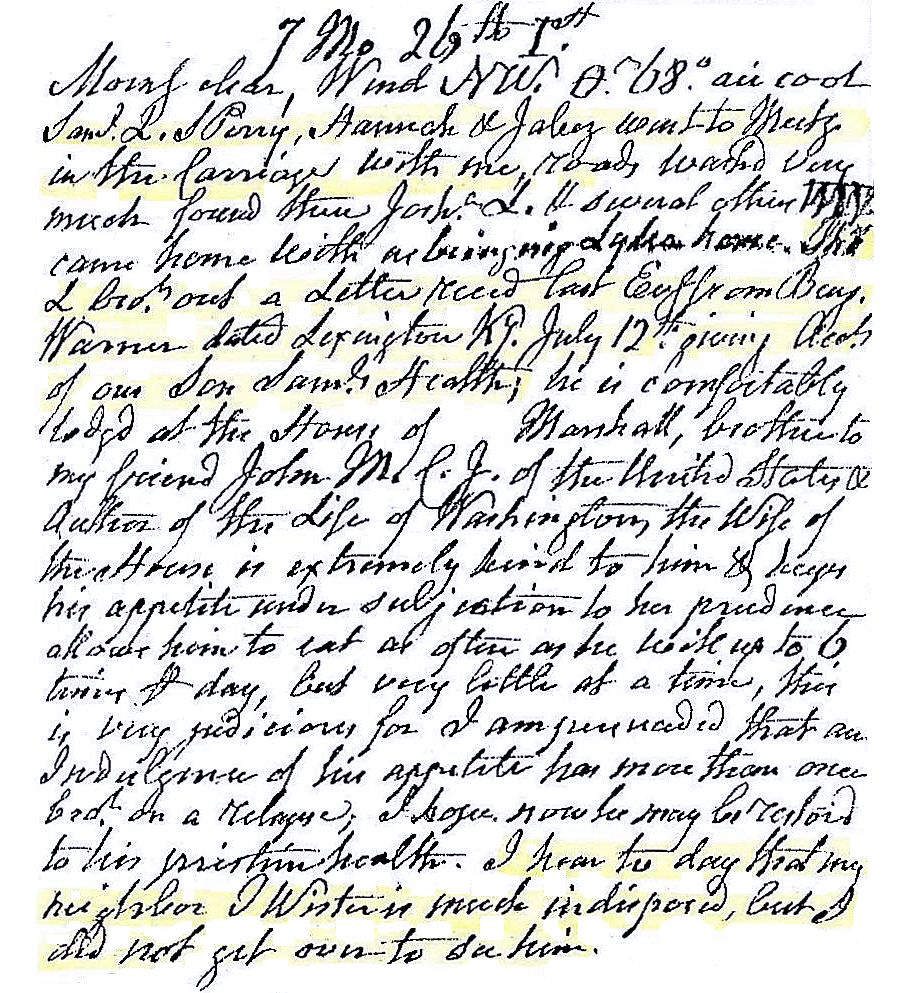 7 Mo 26th 1st
Morng clear, Wind NW. 68° air cool
Saml. L. S Perry, Hannah & Jabez went to Meetg
in the Carriage with me, roads washd very
much found there Josh. L. & several others
came home with us bringing Lydia home.
L brot. out a Letter recd last Eveg from Benj.
Warner dated Lexington Ky. July 12th. giving Acct
of our Son Saml.s Health, he is comfortably
lodgd at the House of Marshall, brother to
my friend John M. C. J. of the United States &
Author of the Life of Washington, the Wife of
the House is extremely kind to him & keeps
his appetite under subjection to her prudence
allows him to eat as often as he will up to 6
times P day, but very little at a time, this
is very judicious for I am persuaded that an
Indulgence of his appetite has more than once
brot. on a relapse, I hope now he may be restord
to his pristine health. I hear to day that my
neighbor I Wister is much indisposed, but I
did not get over to see him.